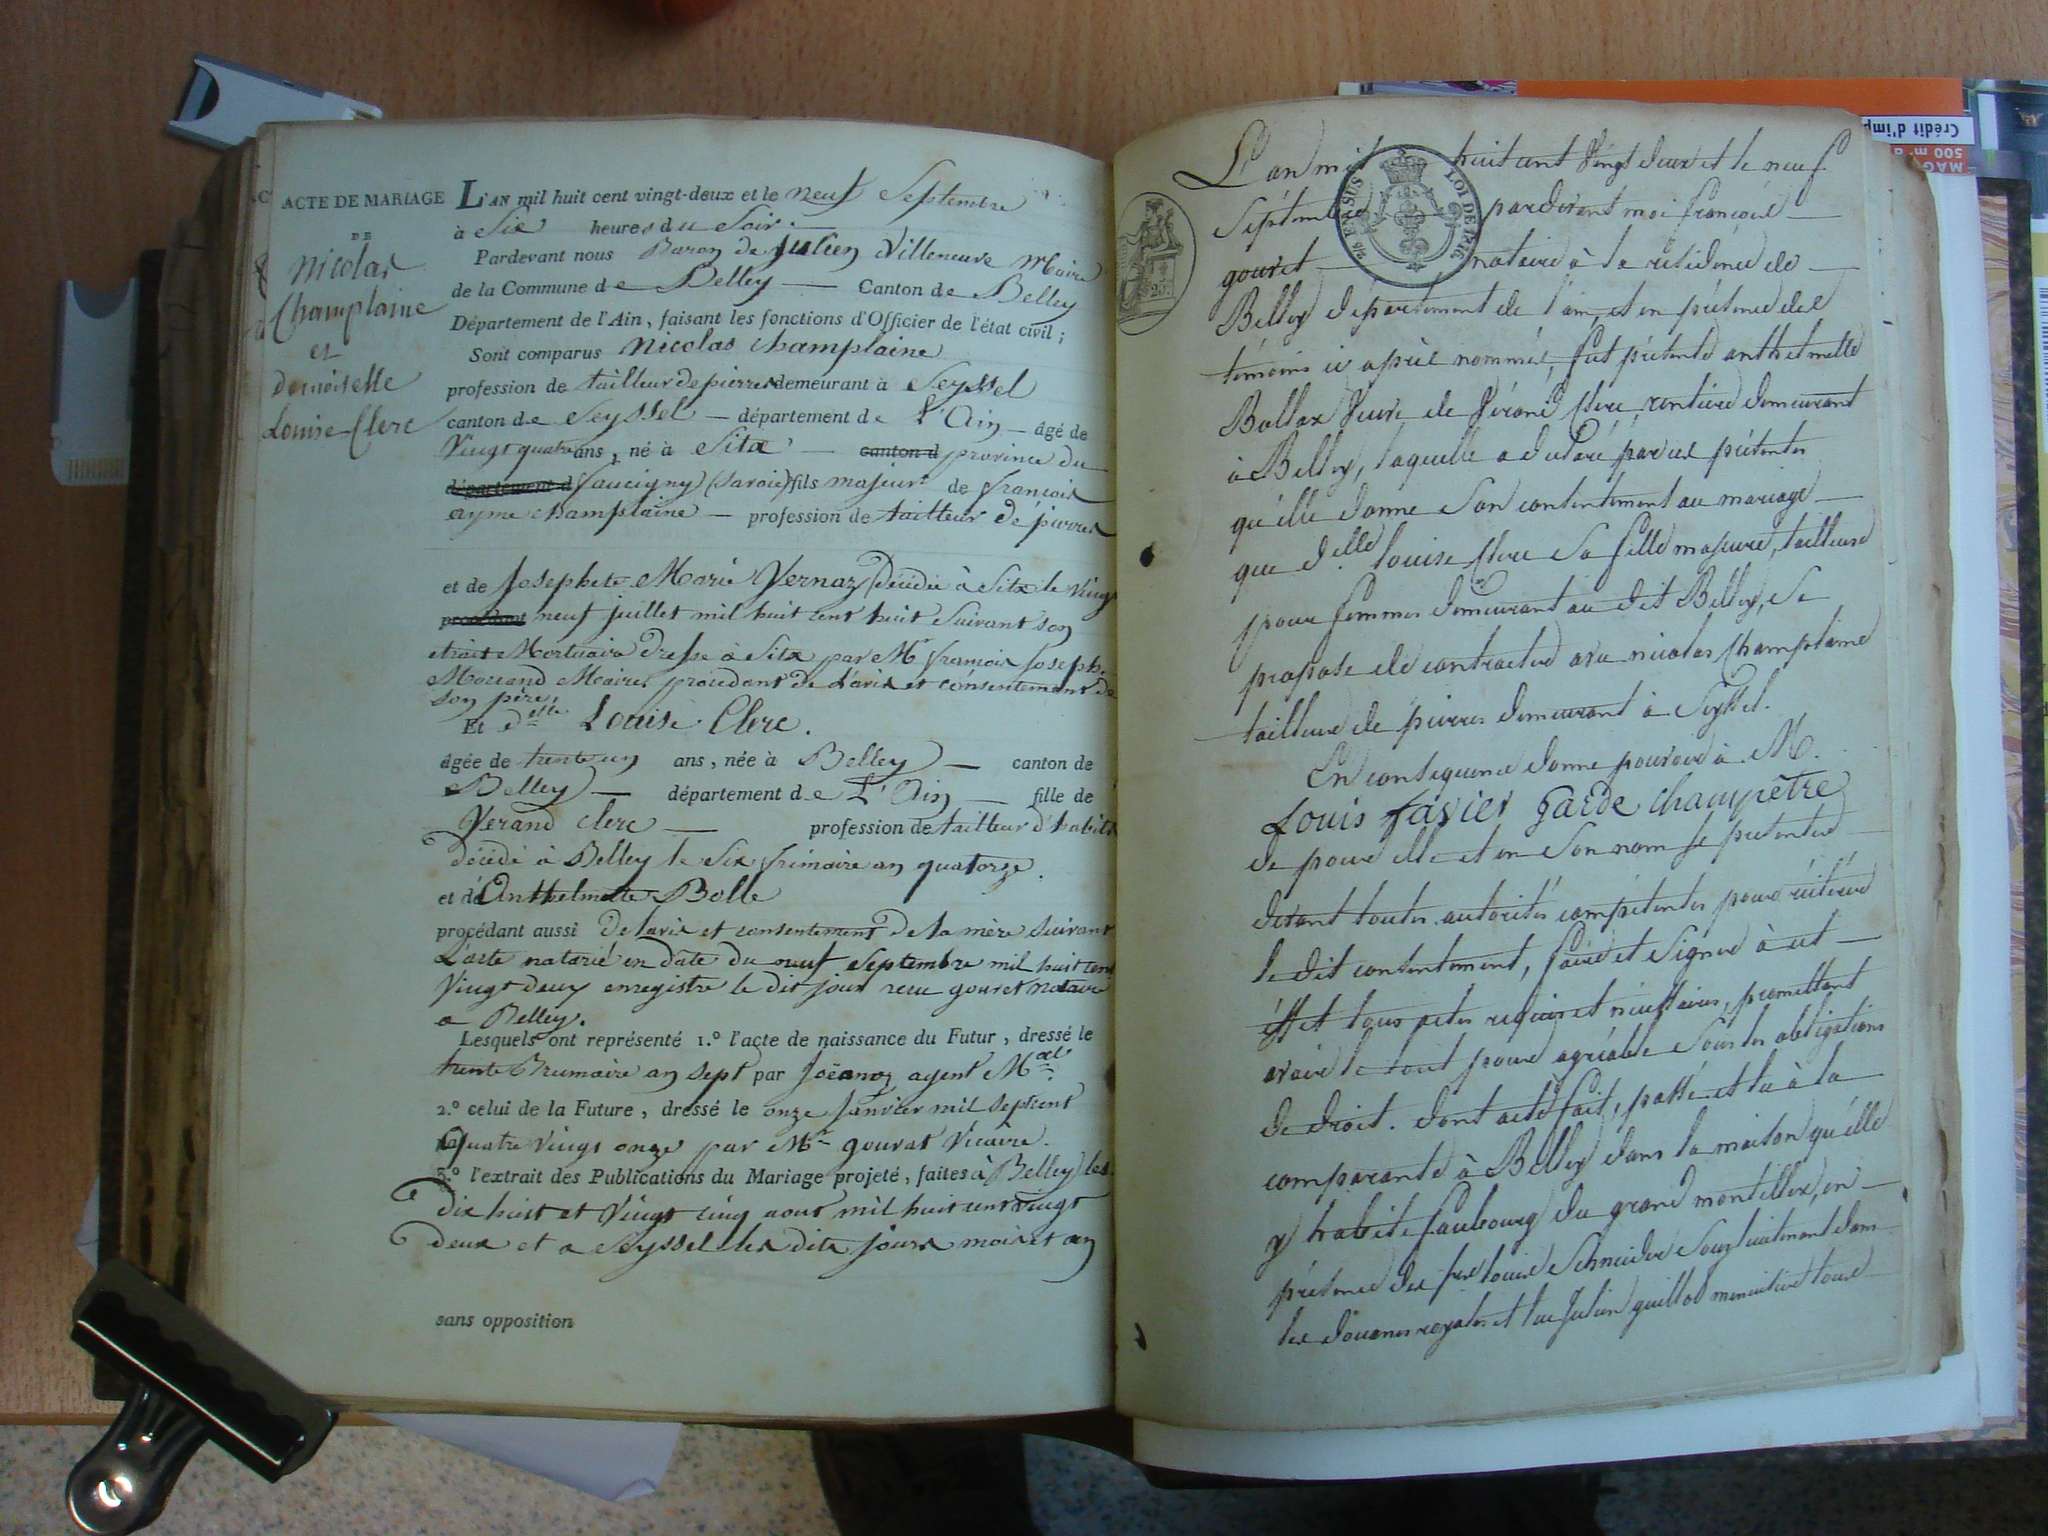 ACTE DE MARIAGE
DE
Nicolas
Champlaine
et
demoiselle
Louise Clerc
L'AN mil huit cent vingt-deux et le neuf Septembre
à Six heures du Soir.
Pardevant nous Baron de Julien Villeneuve Maire
de la Commune de Belley Canton de Belley
Département de l'Ain, faisant les fonctions d'Officier de l'état civil ;
Sont comparus Nicolas Champlaine
profession de tailleur de pierres demeurant à Seyssel
canton de Seyssel département de L'Ain âgé de
Vingt quatre ans, né à Sitx canton d province du
département d faucigny (Savoie) fils majeur de françois
ayme champlaine profession de tailleur de pierres
et de Josephete Marie Vernaz décédée à Sitx le Vingt
procédant neuf juillet mil huit cent huit Suivant son
extrait Mortuaire dressé à Sitx par Mr françois Joseph
Maire, procédant de L'avis et consentement de
son père.
Et delle Louise Clerc.
âgée de trente un ans, née à Belley canton de
Belley département de L'Ain fille de
Verand Clerc profession de tailleur d'habits
décédé à Belley le Six frimaire an quatorze.
et de Anthelmette Bolle
procédant aussi De lavis et consentement de la mère Suivant
L'acte notarié en date du neuf Septembre mil huit cent
Vingt deux enregistré le dit jour recu gouret notaire
a Belley.
Lesquels ont représenté 1.º l'acte de naissance du Futur, dressé le
trente Brumaire an Sept par agent Mal
2.º celui de la Future, dressé le onze Janvier mil Septcent
Quatre Vingt onze par Mr gourat Vicaire.
3.º l'extrait des Publications du Mariage projeté, faites à Belley les
dix huit et Vingt cinq aout mil huit cent vingt
deux et a Seyssel les dits jours mois et an
sans opposition
L'an mil huit cent Vingt deux et le neuf
Septembre pardevant moi françois
gouret notaire à la résidence de
Belley département de l'ain, et en présence des
témoins ci après nommés, fut présente anthelmette
Bollax Veuve de Vérand Clerc, rentière demeurant
à Belley, laquelle a déclaré par ces présentes
qu'elle donne Son contentement au mariage
que delle louise Clerc Sa fille majeure, tailleuse
pour femmes demeurant au dit Belley, Se
propose de contracter avec nicolas Champlaine
tailleur de pierres demeurant à Seyssel.
En conséquence donne pouvoir à M.
Louis favier garde champêtre
de pour elle et en Son nom Se présenter
devant toutes autorités compétentes pour réitérer
le dit contentement, faire et Signer à cet
éffet tous actes requis et nécessaires, promettant
avoir le tout pour agréable Sous les obligations
de droit. dont acte fait, passé et lu à la
comparante à Belley dans la maison qu'elle
y habite faubourg du grand en
présence des Srs louis Schneider Souslieutenant dans
les douanes royales et luc Julien guillot menuisier tous
2/5 EN SUS
LOI DE 1816